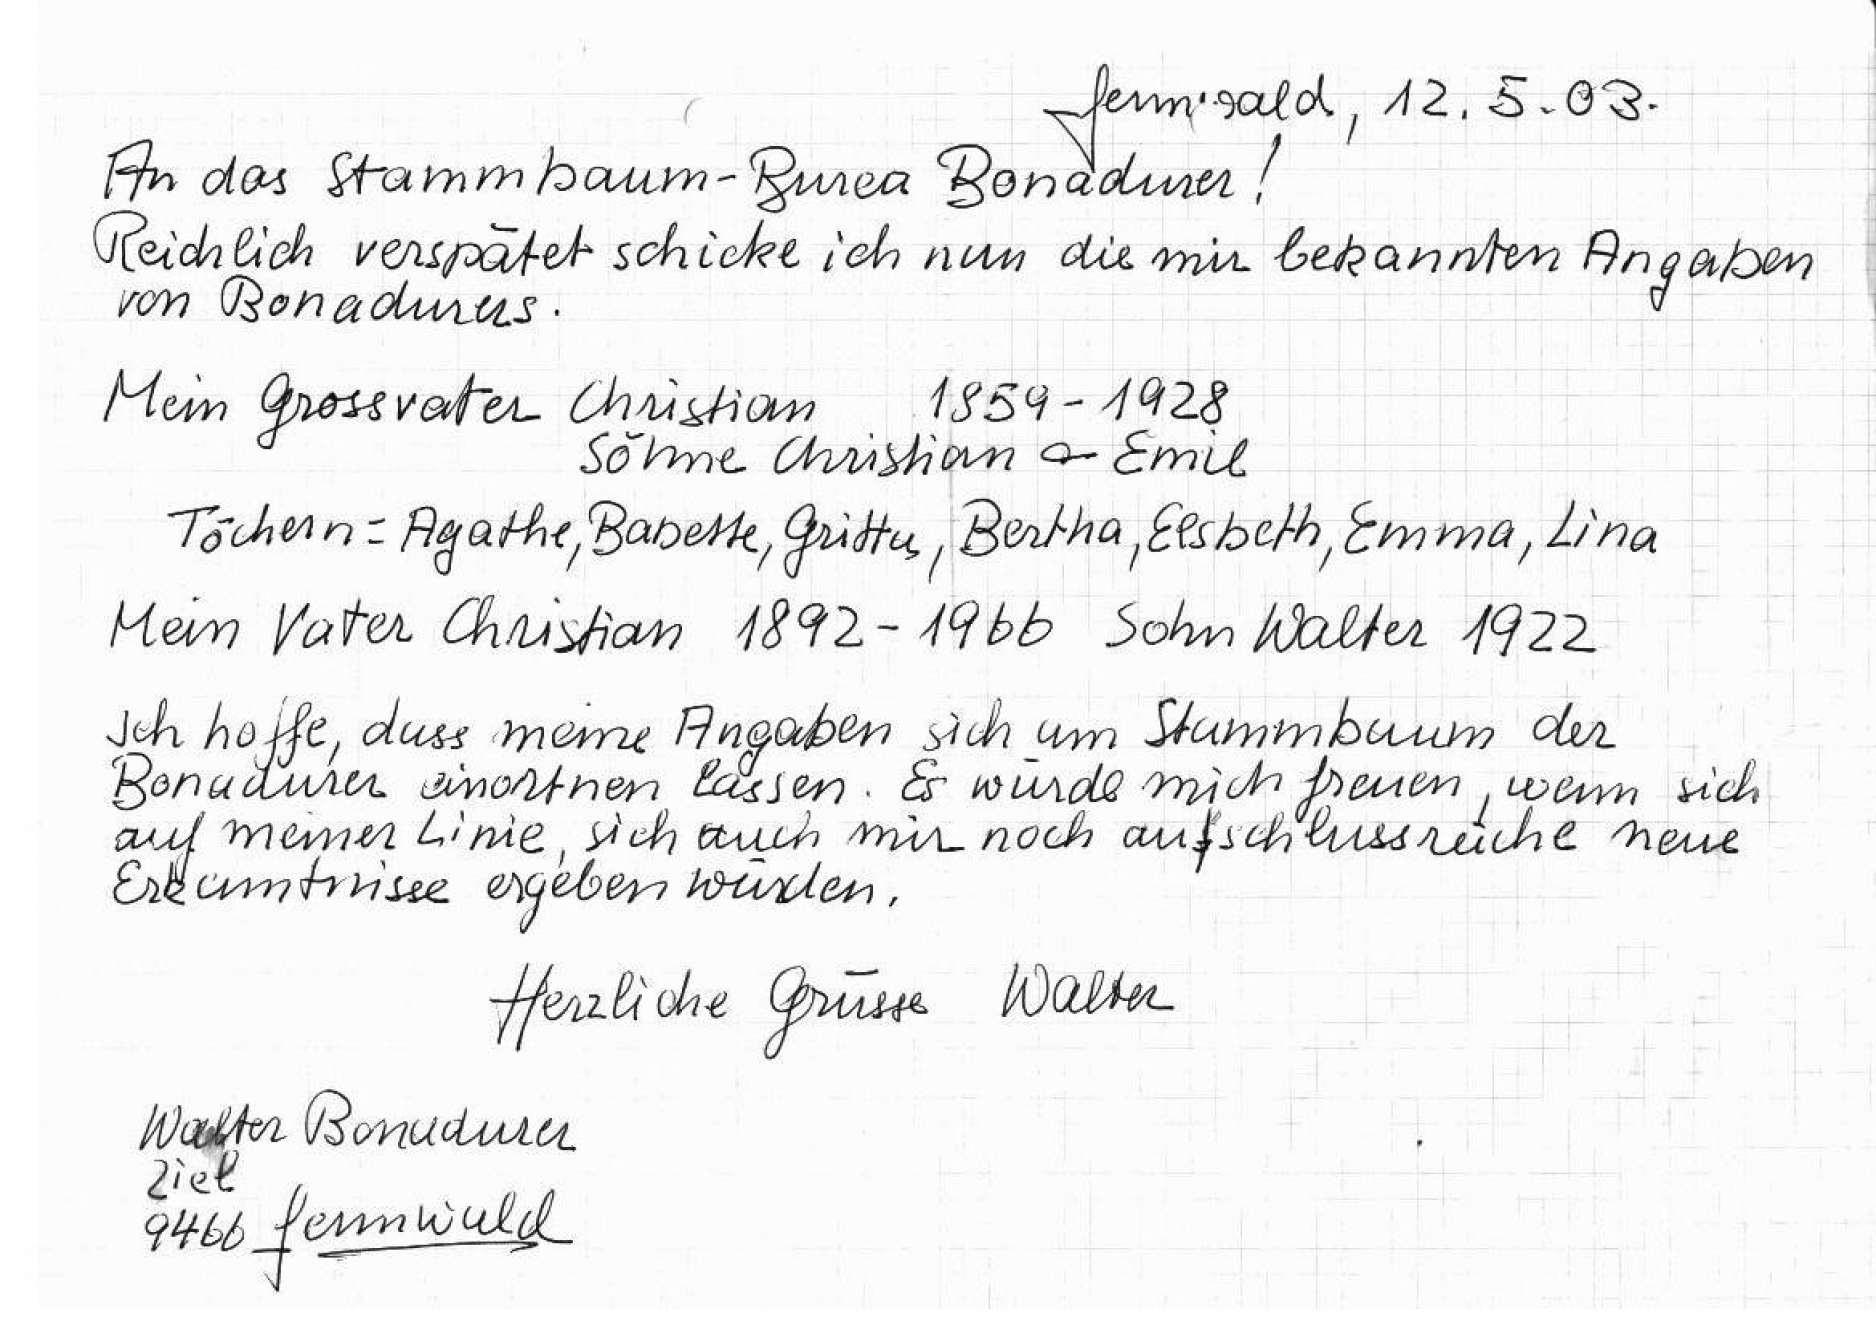 Sennwald, 12.5.03.
An das Stammbaum-Burea Bonadurer!
Reichlich verspätet schicke ich nun die mir bekannten Angaben
von Bonadurers.
Mein Grossvater Christian 1859-1928
Söhne Christian & Emil
Töchern = Agathe, Babette, Gritta, Bertha, Elsbeth, Emma, Lina
Mein Vater Christian 1892-1966 Sohn Walter 1922
Ich hoffe, dass meine Angaben sich am Stammbaum der
Bonadurer einortnen lassen. Es würde mich freuen, wenn sich
auf meiner Linie, sich auch mir noch aufschlussreiche neue
Erkanntnisse ergeben würden.
Herzliche Grüsse Walter
Walter Bonadurer
Ziel
9466 Sennwald